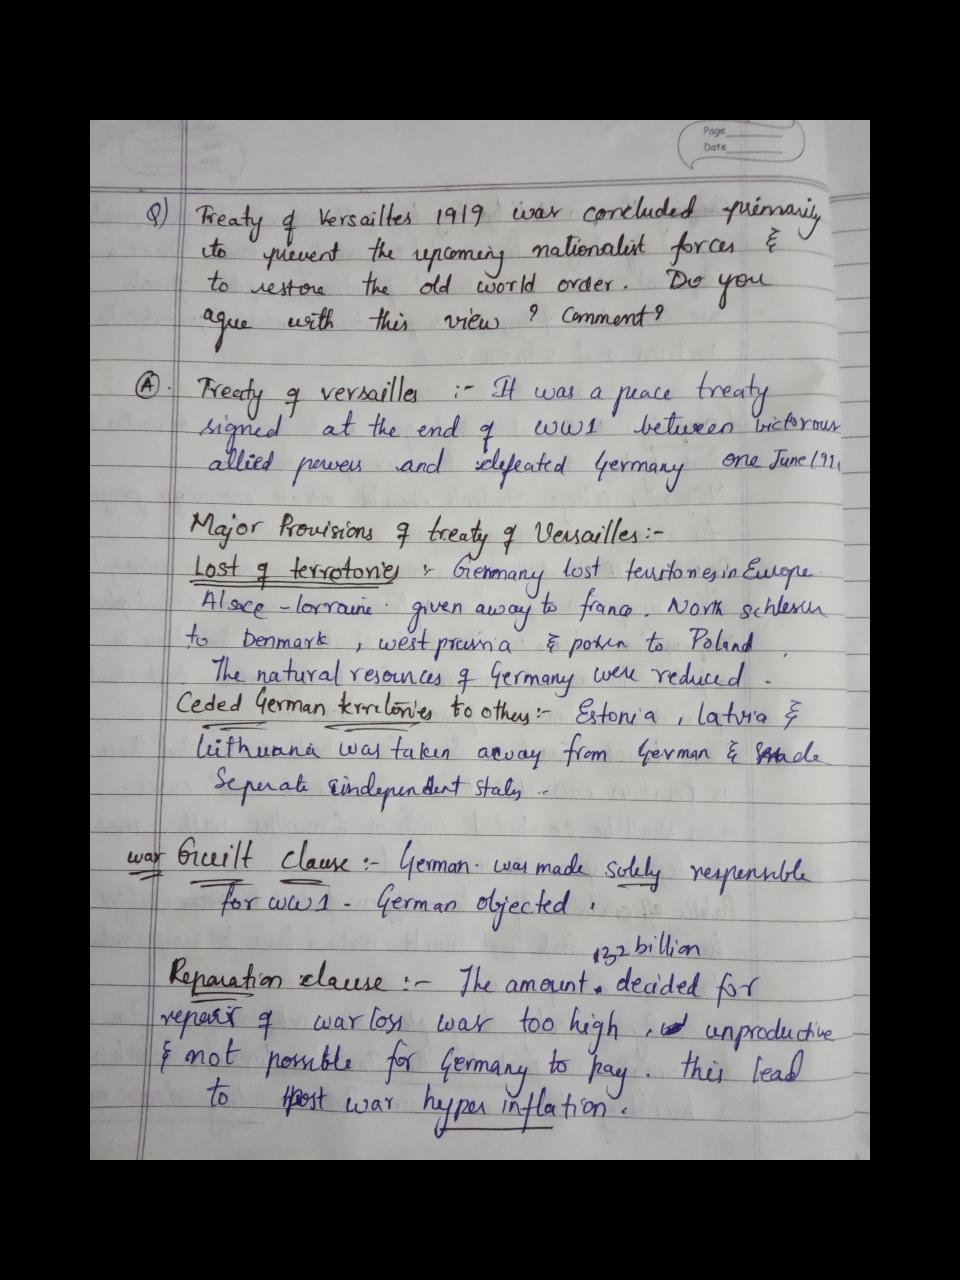 Page
Date
Q) Treaty of Versailles 1919 was concluded primarily
to prevent the upcoming nationalist forces &
to restore the old world order. Do you
ague with this view ? Comment?
A. Treaty of versailles :- It was a peace treaty
signed at the end of WW1 between victorous
allied powers and defeated Germany one June 191
Major Provisions of treaty of Versailles:-
Lost of terrotories :- Germany lost territories in Europe
Alsace-lorraine given away to france. North schleswn
to Denmark, west prussia & posen to Poland.
The natural resources of Germany were reduced.
Ceded German territories to others:- Estonia, latvia &
lithuana was taken away from German & made
Seperate independent states.
war Guilt clause :- German was made solely responsible
for WW1 - German objected.
132 billion
Reparation clause :- The amount decided for
repair of war loss was too high, unproductive
& not possible for Germany to pay. this lead
to post war hyper inflation.